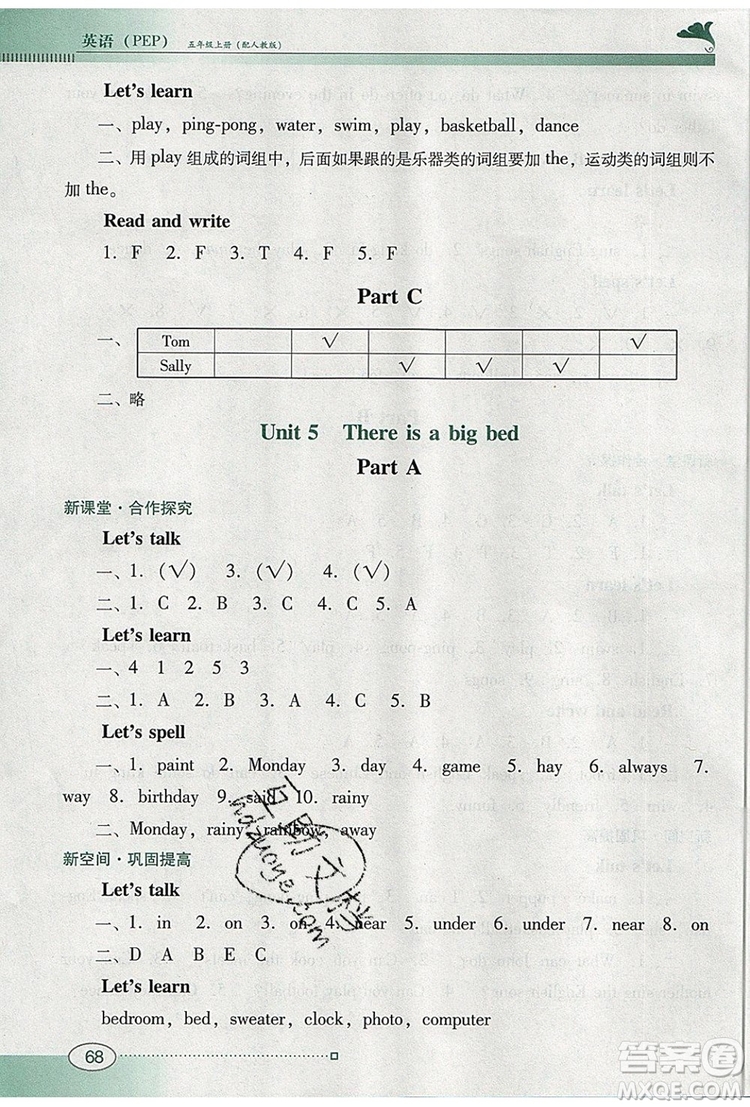 英语（PEP） 五年级上册（配人教版）
Let's learn
一、play，ping-pong，water，swim，play，basketball，dance
二、用 play 组成的词组中，后面如果跟的是乐器类的词组要加 the，运动类的词组则不
加 the。
Read and write
1. F 2. F 3. T 4. F 5. F
Part C
一、 Tom √ √
Sally √ √ √
二、略
Unit 5 There is a big bed
Part A
新课堂·合作探究
Let's talk
一、1.（√） 3.（√） 4.（√）
二、1. C 2. B 3. C 4. C 5. A
Let's learn
一、4 1 2 5 3
二、1. A 2. B 3. A 4. C 5. B
Let's spell
一、1. paint 2. Monday 3. day 4. game 5. hay 6. always 7.
way 8. birthday 9. said 10. rainy
二、Monday，rainy，rainbow，away
新空间·巩固提高
Let's talk
一、1. in 2. on 3. on 4. near 5. under 6. under 7. near 8. on
二、D A B E C
Let's learn
bedroom，bed，sweater，clock，photo，computer
68
答案圈
MXQE.COM